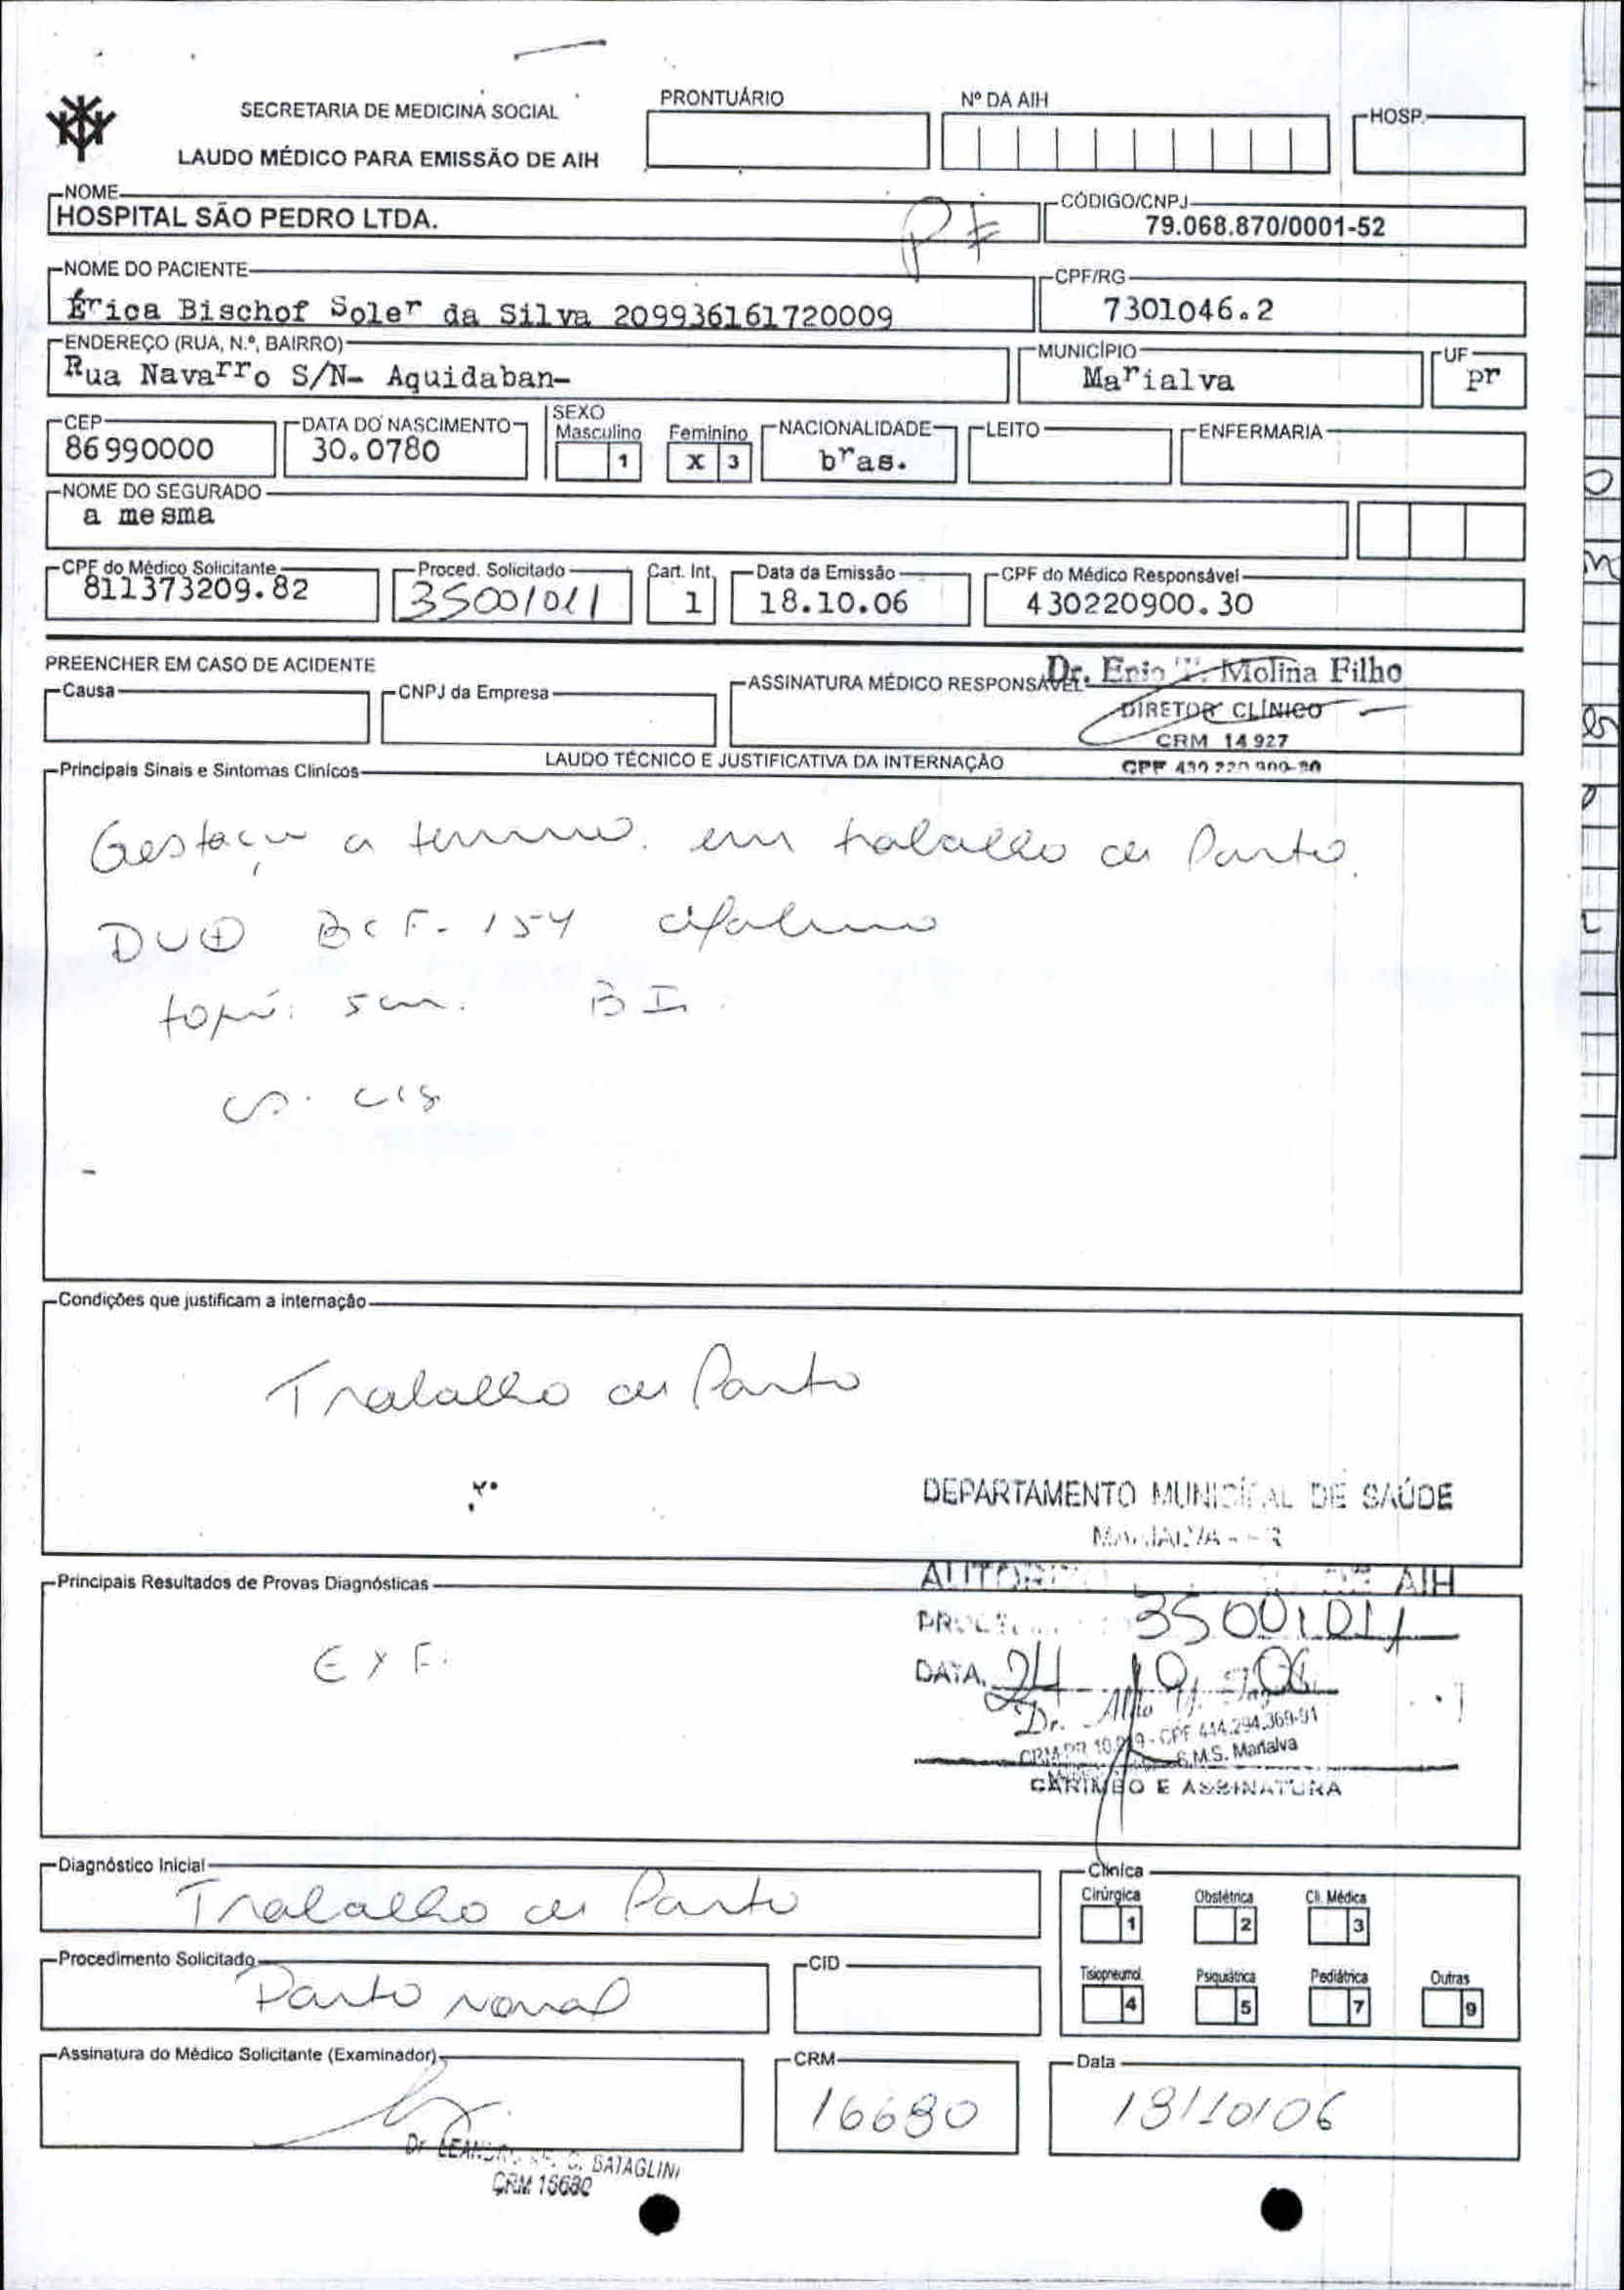 SECRETARIA DE MEDICINA SOCIAL
LAUDO MÉDICO PARA EMISSÃO DE AIH
PRONTUÁRIO
Nº DA AIH
HOSP.
NOME
HOSPITAL SÃO PEDRO LTDA.
CÓDIGO/CNPJ
79.068.870/0001-52
NOME DO PACIENTE
Érica Bischof Soler da Silva 209936161720009
CPF/RG
7301046.2
ENDEREÇO (RUA, N.º, BAIRRO)
Rua Navarro S/N- Aquidaban-
MUNICÍPIO
Marialva
UF
pr
CEP
86990000
DATA DO NASCIMENTO
30.0780
SEXO
Masculino 1
Feminino x 3
NACIONALIDADE
bras.
LEITO
ENFERMARIA
NOME DO SEGURADO
a mesma
CPF do Médico Solicitante
811373209.82
Proced. Solicitado
35001011
Cart. Int.
1
Data da Emissão
18.10.06
CPF do Médico Responsável
430220900.30
PREENCHER EM CASO DE ACIDENTE
Causa
CNPJ da Empresa
ASSINATURA MÉDICO RESPONSÁVEL
Dr. Enio Molina Filho
DIRETOR CLÍNICO
CRM 14927
CPF 430 220 900-30
LAUDO TÉCNICO E JUSTIFICATIVA DA INTERNAÇÃO
Principais Sinais e Sintomas Clínicos
Gestação a termo. em trabalho de Parto.
DU⊕ BCF. 154 cefalico
toque: 5 cm. BI.
Condições que justificam a internação
Trabalho de Parto
DEPARTAMENTO MUNICIPAL DE SAÚDE
MARIALVA - PR
AIH
35001011
DATA. 24 10 06
Dr.
CPF 444.294.369-91
S.M.S. Marialva
CARIMBO E ASSINATURA
Principais Resultados de Provas Diagnósticas
EXF.
Diagnóstico Inicial
Trabalho de Parto
Clínica
Cirúrgica 1
Obstétrica 2
Cli. Médica 3
Tisiopneumol. 4
Psiquiátrica 5
Pediátrica 7
Outras 9
Procedimento Solicitado
Parto Normal
CID
Assinatura do Médico Solicitante (Examinador)
Dr BATAGLINI
CRM 16680
CRM
16680
Data
18/10/06